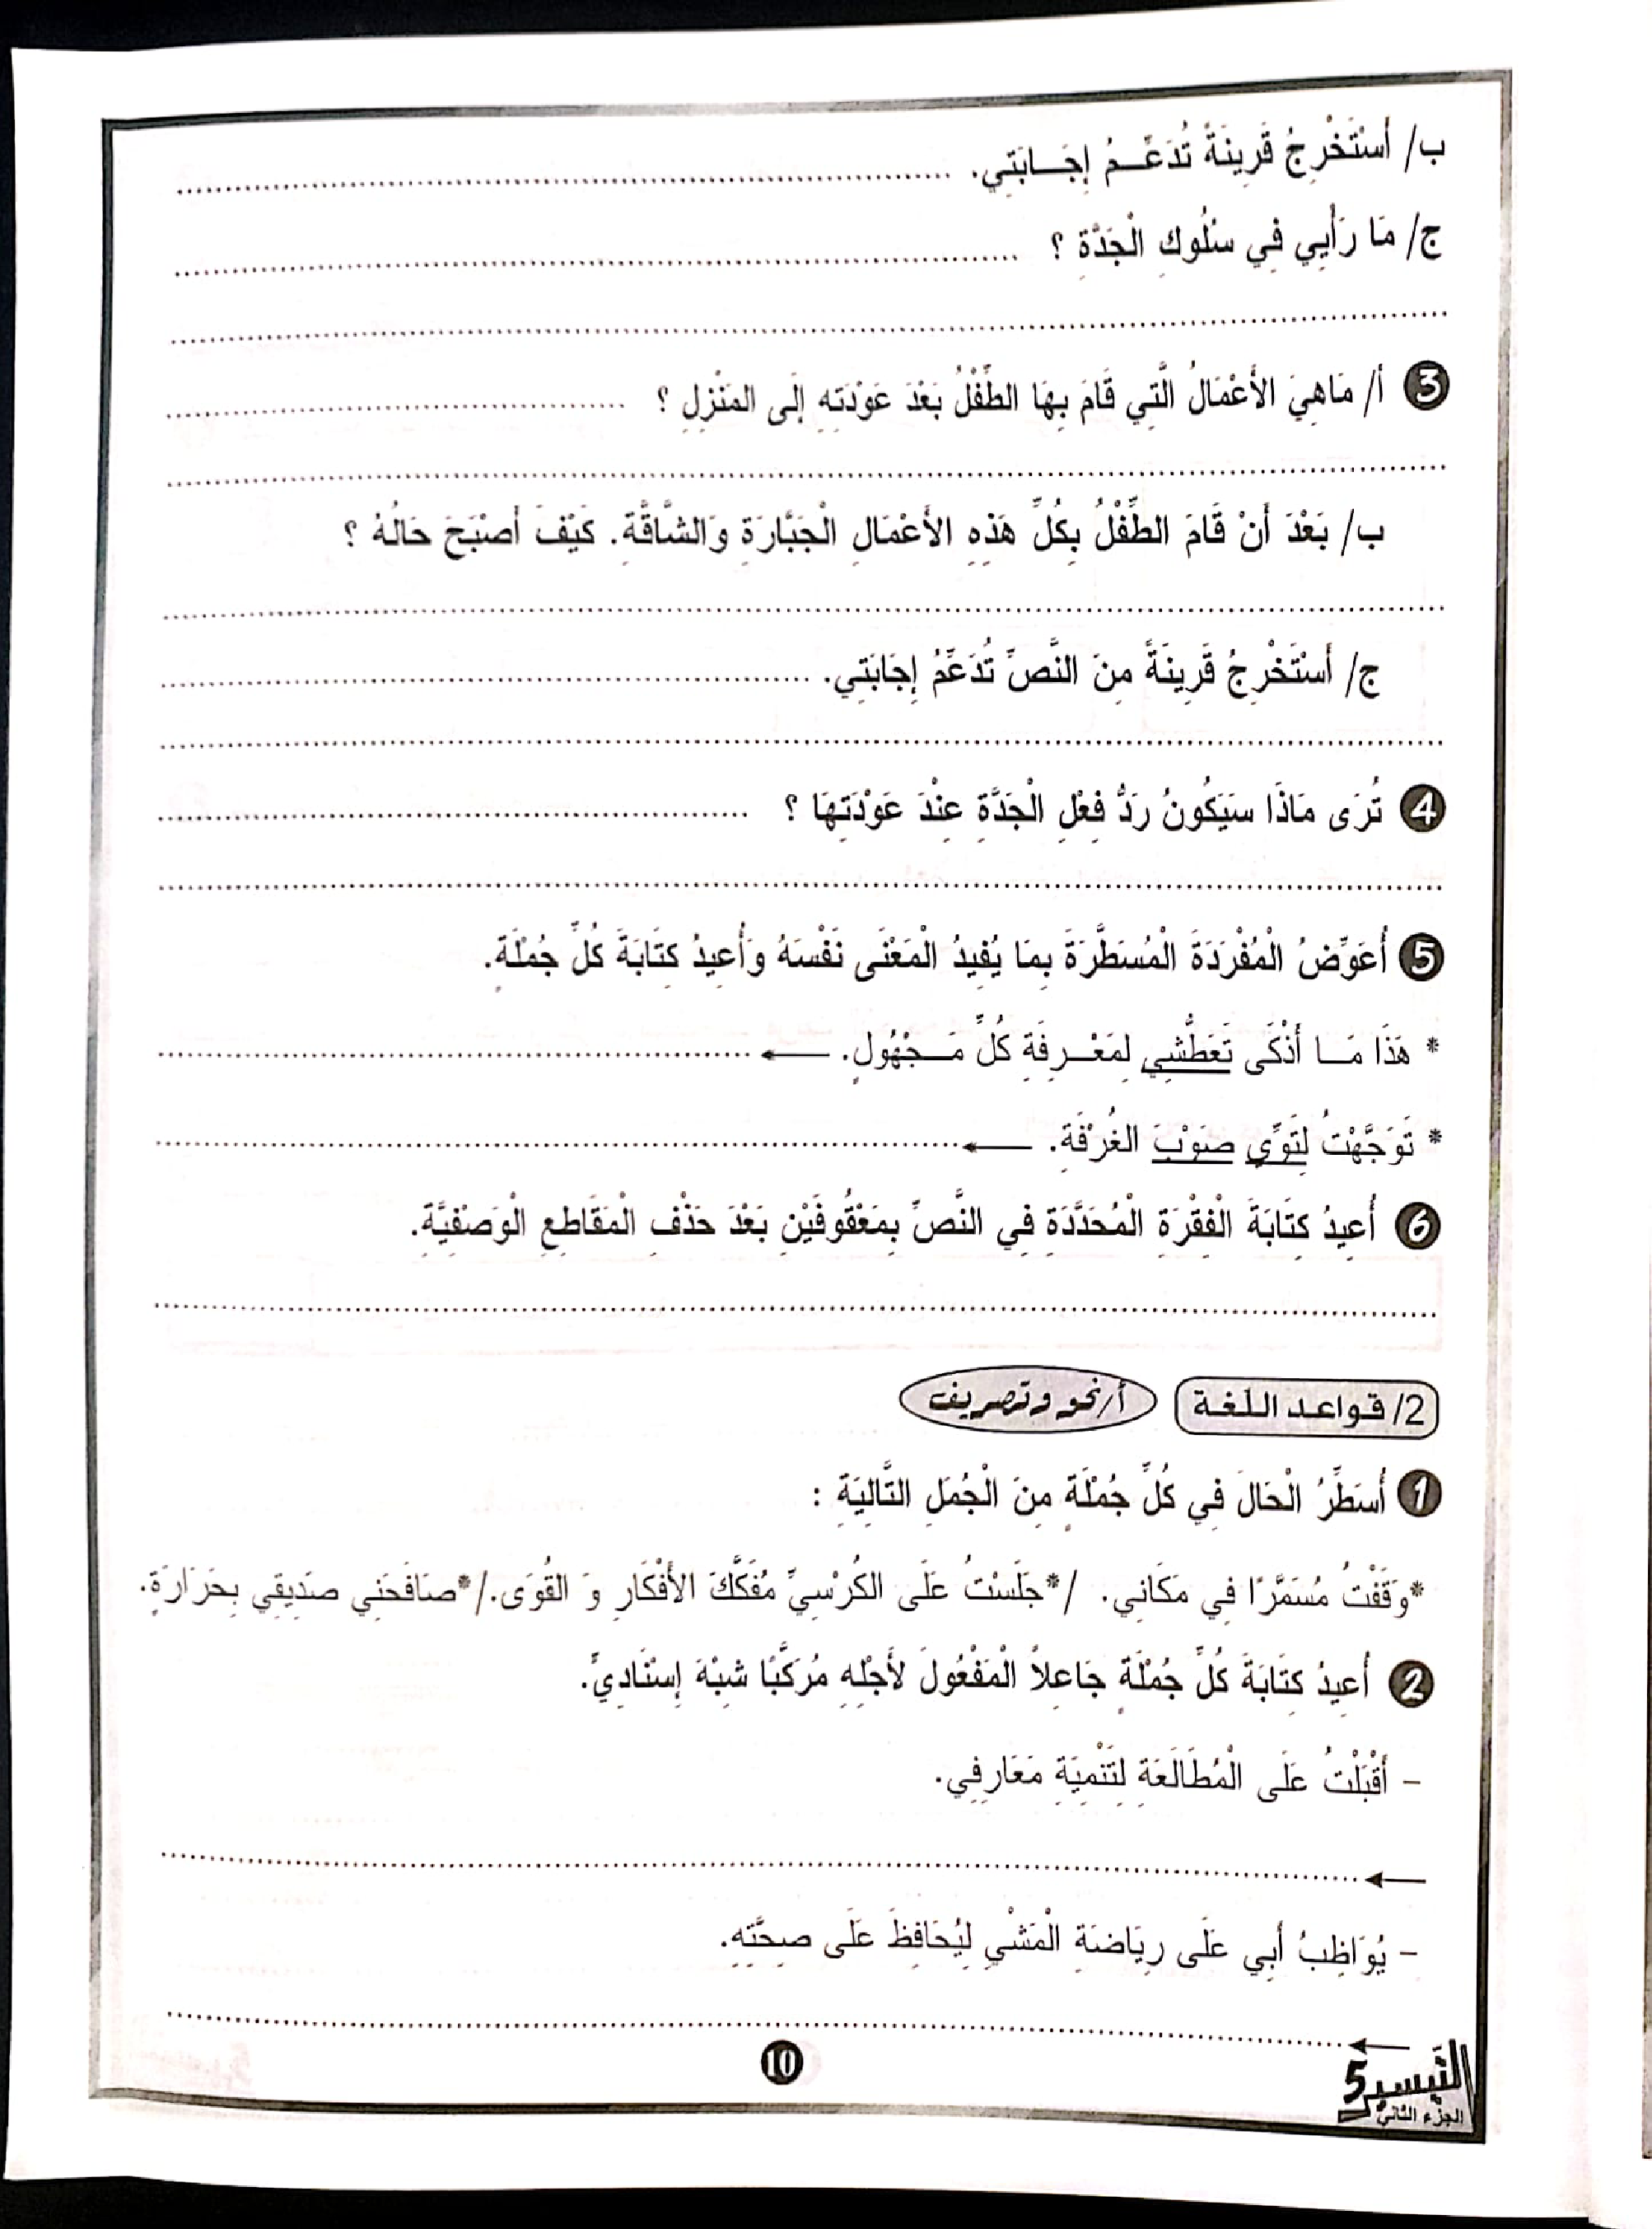 ب/ أَسْتَخْرِجُ قَرِينَةً تُدَعِّمُ إِجَابَتِي. ................
ج/ مَا رَأْيِي فِي سُلُوكِ الْجَدَّةِ ؟ ................
................
3 أ/ مَاهِيَ الأَعْمَالُ الَّتِي قَامَ بِهَا الطِّفْلُ بَعْدَ عَوْدَتِهِ إِلَى المَنْزِلِ ؟ ................
................
ب/ بَعْدَ أَنْ قَامَ الطِّفْلُ بِكُلِّ هَذِهِ الأَعْمَالِ الْجَبَّارَةِ وَالشَّاقَّةِ. كَيْفَ أَصْبَحَ حَالُهُ ؟
................
ج/ أَسْتَخْرِجُ قَرِينَةً مِنَ النَّصِّ تُدَعِّمُ إِجَابَتِي. ................
................
4 تُرَى مَاذَا سَيَكُونُ رَدُّ فِعْلِ الْجَدَّةِ عِنْدَ عَوْدَتِهَا ؟ ................
................
5 أُعَوِّضُ الْمُفْرَدَةَ الْمُسَطَّرَةَ بِمَا يُفِيدُ الْمَعْنَى نَفْسَهُ وَأُعِيدُ كِتَابَةَ كُلِّ جُمْلَةٍ.
* هَذَا مَا أَذْكَى تَعَطُّشِي لِمَعْرِفَةِ كُلِّ مَجْهُولٍ. ← ................
* تَوَجَّهْتُ لِتَوِّي صَوْبَ الغُرْفَةِ. ← ................
6 أُعِيدُ كِتَابَةَ الْفِقْرَةِ الْمُحَدَّدَةِ فِي النَّصِّ بِمَعْقُوفَيْنِ بَعْدَ حَذْفِ الْمَقَاطِعِ الْوَصْفِيَّةِ.
................
2/ قواعد اللغة أ/ نحو وتصريف
1 أُسَطِّرُ الْحَالَ فِي كُلِّ جُمْلَةٍ مِنَ الْجُمَلِ التَّالِيَةِ :
*وَقَفْتُ مُسَمَّرًا فِي مَكَانِي. /*جَلَسْتُ عَلَى الكُرْسِيِّ مُفَكَّكَ الأَفْكَارِ وَ القُوَى./*صَافَحَنِي صَدِيقِي بِحَرَارَةٍ.
2 أُعِيدُ كِتَابَةَ كُلِّ جُمْلَةٍ جَاعِلاً الْمَفْعُولَ لأَجْلِهِ مُرَكَّبًا شِبْهَ إِسْنَادِيٍّ.
- أَقْبَلْتُ عَلَى الْمُطَالَعَةِ لِتَنْمِيَةِ مَعَارِفِي.
← ................
- يُوَاظِبُ أَبِي عَلَى رِيَاضَةِ الْمَشْيِ لِيُحَافِظَ عَلَى صِحَّتِهِ.
← ................
10
التيسير 5
الجزء الثاني